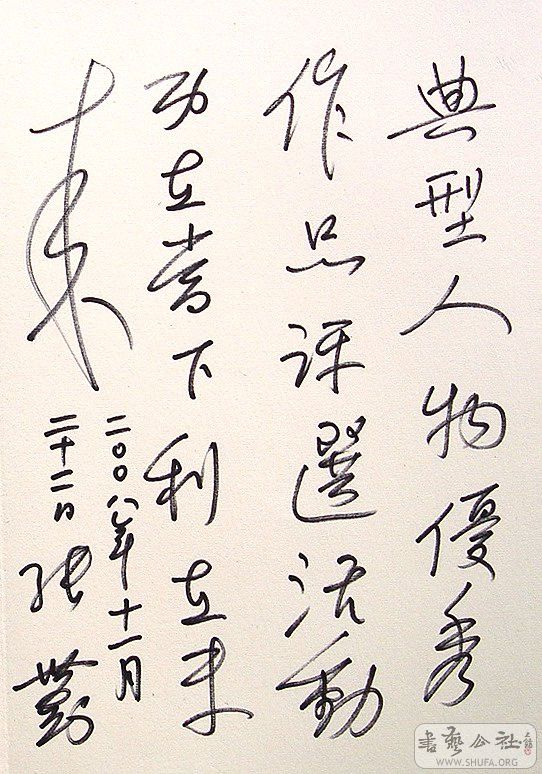 典型人物優秀
作品评選活動
功在當下利在未
来
二〇〇八年十一月
二十二日 张
書藝公社
WWW.SHUFA.ORG